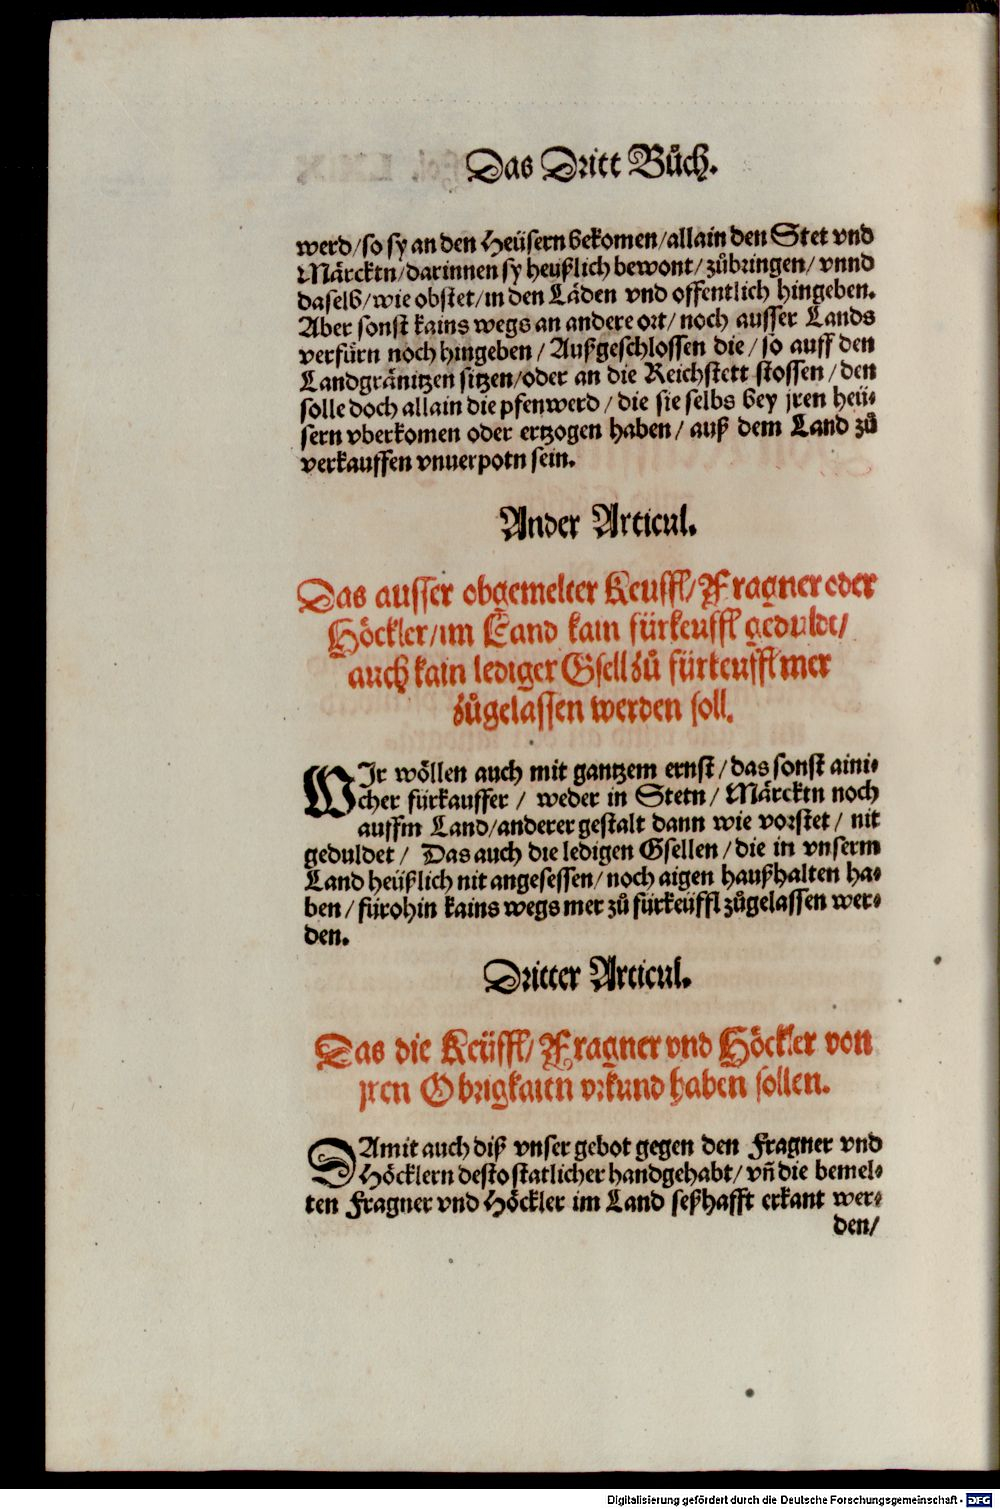 Das Dritt Bůch.
werd/so sy an den Heüsern bekomen/allain den Stet vnd
Märcktn/darinnen sy heußlich bewont/zůbringen/vnnd
daselb/wie obstet/in den Läden vnd offentlich hingeben.
Aber sonst kains wegs an andere ort/noch ausser Lands
verfürn noch hingeben/Außgeschlossen die/so auff den
Landgränitzen sitzen/oder an die Reichstett stossen/den
solle doch allain die pfenwerd/die sie selbs bey jren heü⸗
sern vberkomen oder ertzogen haben/auß dem Land zů
verkauffen vnuerpotn sein.
Ander Articul.
Das ausser obgemelter Keuffl/Fragner oder
Höckler/im Land kain fürkeuffl geduldt/
auch kain lediger Gsell zů fürkeuffl mer
zůgelassen werden soll.
WIr wöllen auch mit gantzem ernst/das sonst aini⸗
cher fürkauffer/weder in Stetn/Märcktn noch
auffm Land/anderer gestalt dann wie vorstet/nit
geduldet/Das auch die ledigen Gsellen/die in vnserm
Land heüßlich nit angesessen/noch aigen haußhalten ha⸗
ben/fürohin kains wegs mer zů fürkeüffl zůgelassen wer⸗
den.
Dritter Articul.
Das die Keüffl/Fragner vnd Höckler von
jren Obrigkaiten vrkund haben sollen.
DAmit auch diß vnser gebot gegen den Fragner vnd
Höcklern desto statlicher handgehabt/vñ die bemel⸗
ten Fragner vnd Höckler im Land seßhafft erkant wer⸗
den/
Digitalisierung gefördert durch die Deutsche Forschungsgemeinschaft - DFG